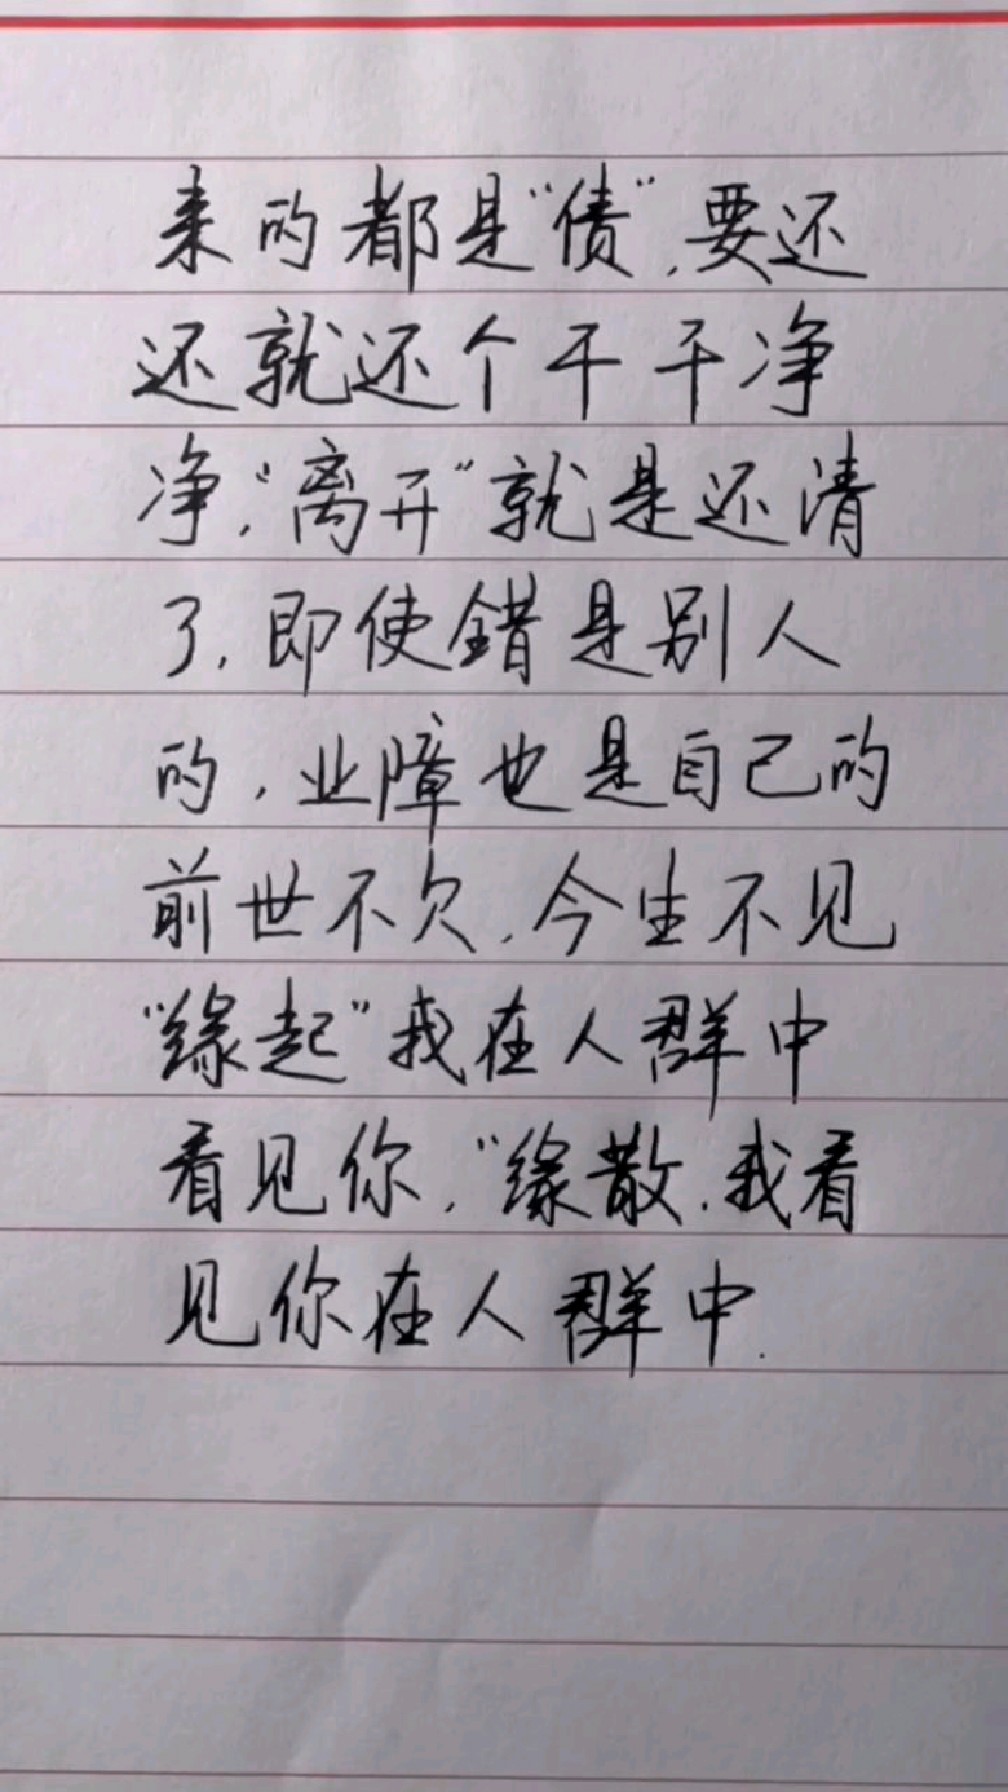 来的都是“债”,要还
还就还个干干净
净,“离开”就是还清
了,即使錯是别人
的,业障也是自己的
前世不欠,今生不见
“缘起”我在人群中
看见你,“缘散,我看
见你在人群中.